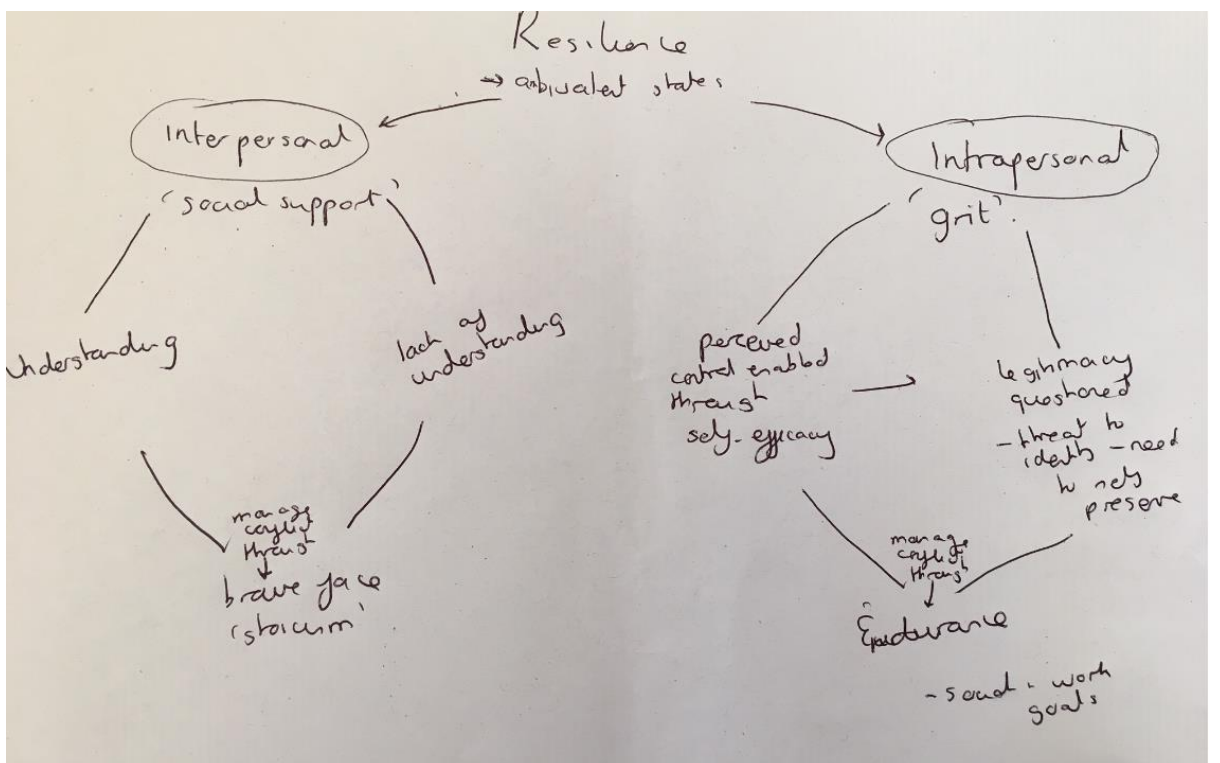 Resilience
→ ambivalent states
Interpersonal
'social support'
Understanding
lack of
understanding
manage
conflict
through
brave face
'stoicism'
Intrapersonal
'grit'.
perceived
control enabled
through
self-efficacy
legitimacy
questioned
- threat to
identity - need
to self
preserve
manage
conflict
through
Endurance
- social + work
goals